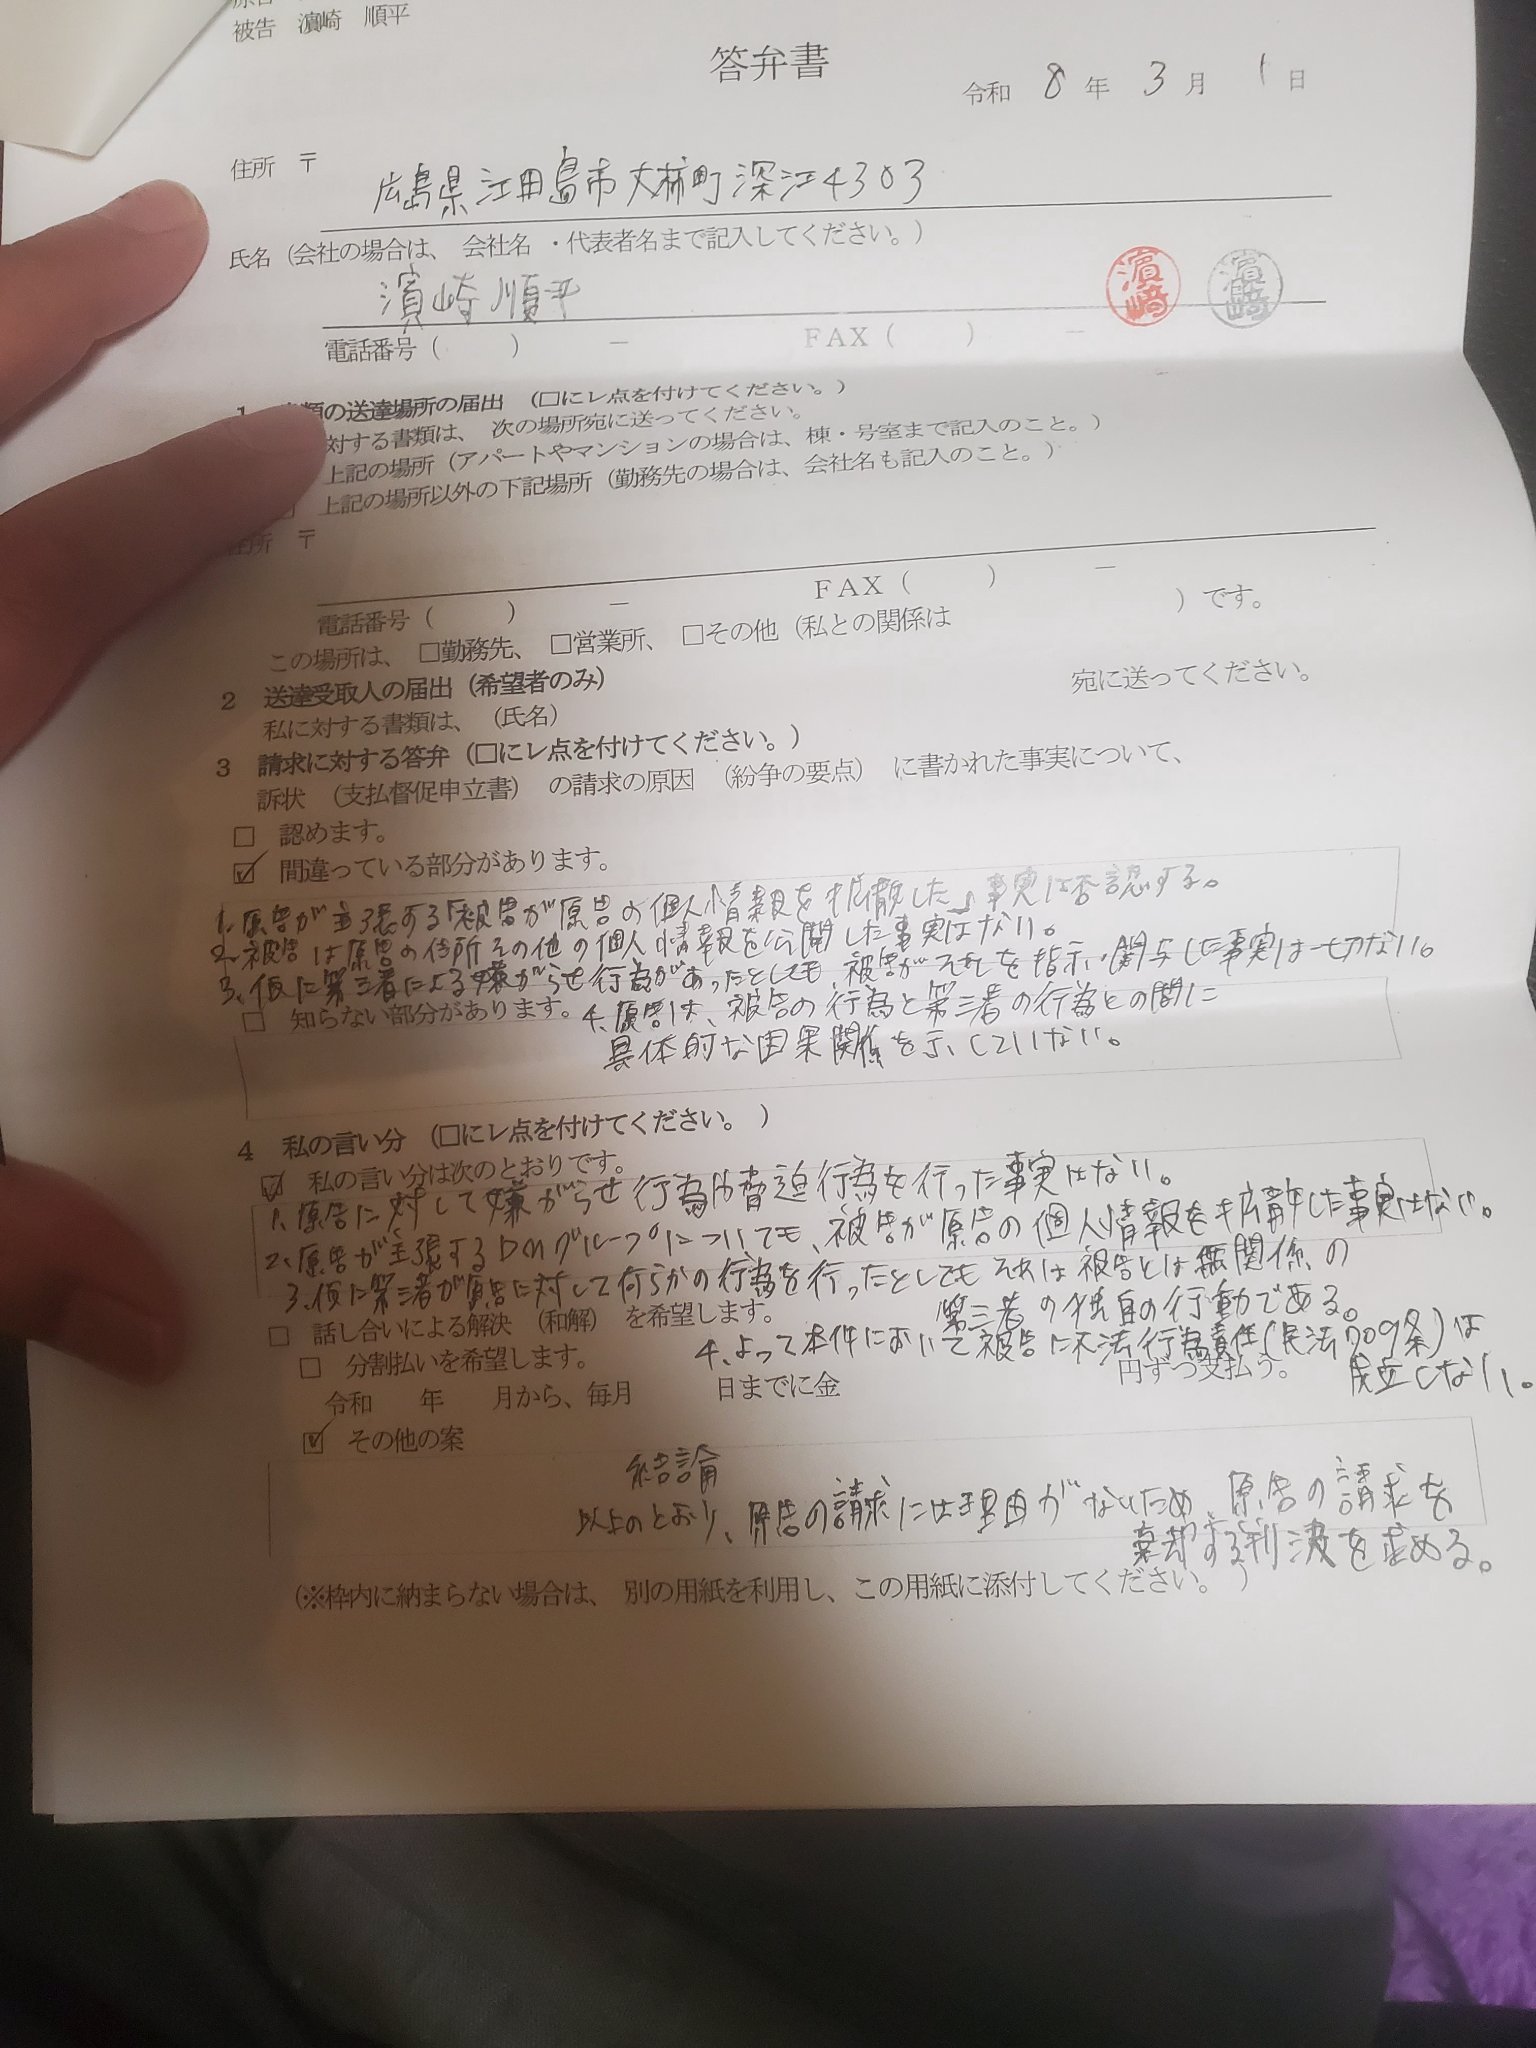 被告 濵崎 順平
答弁書
令和 8 年 3 月 1 日
住所 〒
広島県江田島市大柿町深江4303
氏名（会社の場合は、会社名・代表者名まで記入してください。）
濵崎順平
濵崎 濵崎
電話番号（ ） － FAX（ ） －
類の送達場所の届出（□にレ点を付けてください。）
対する書類は、次の場所宛に送ってください。
上記の場所（アパートやマンションの場合は、棟・号室まで記入のこと。）
上記の場所以外の下記場所（勤務先の場合は、会社名も記入のこと。）
住所 〒
電話番号（ ） － FAX（ ） －
この場所は、□勤務先、□営業所、□その他（私との関係は ）です。
2 送達受取人の届出（希望者のみ）
私に対する書類は、（氏名） 宛に送ってください。
3 請求に対する答弁（□にレ点を付けてください。）
訴状（支払督促申立書）の請求の原因（紛争の要点）に書かれた事実について、
□ 認めます。
☑ 間違っている部分があります。
1.原告が主張する「被告が原告の個人情報を拡散した」事実は否認する。
2.被告は原告の住所その他の個人情報を公開した事実はない。
3.仮に第三者による嫌がらせ行為があったとしても、被告がそれを指示・関与した事実は一切ない。
□ 知らない部分があります。
4.原告は、被告の行為と第三者の行為との間に
具体的な因果関係を示していない。
4 私の言い分（□にレ点を付けてください。）
☑ 私の言い分は次のとおりです。
1.原告に対して嫌がらせ行為や脅迫行為を行った事実はない。
2.原告が主張するDMグループについても、被告が原告の個人情報を拡散した事実はない。
3.仮に第三者が原告に対して何らかの行為を行ったとしてもそれは被告とは無関係の
第三者の独自の行動である。
□ 話し合いによる解決（和解）を希望します。
4.よって本件において被告に不法行為責任(民法709条)は
成立しない。
□ 分割払いを希望します。
令和 年 月から、毎月 日までに金 円ずつ支払う。
☑ その他の案
結論
以上のとおり、原告の請求には理由がないため、原告の請求を
棄却する判決を求める。
（※枠内に納まらない場合は、別の用紙を利用し、この用紙に添付してください。）